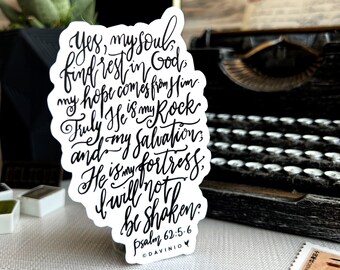 Yes, my soul,
find rest in God;
my hope comes from Him.
Truly He is my Rock
and my Salvation;
He is my fortress,
I will not
be shaken.
psalm 62:5-6
©DAVINIO